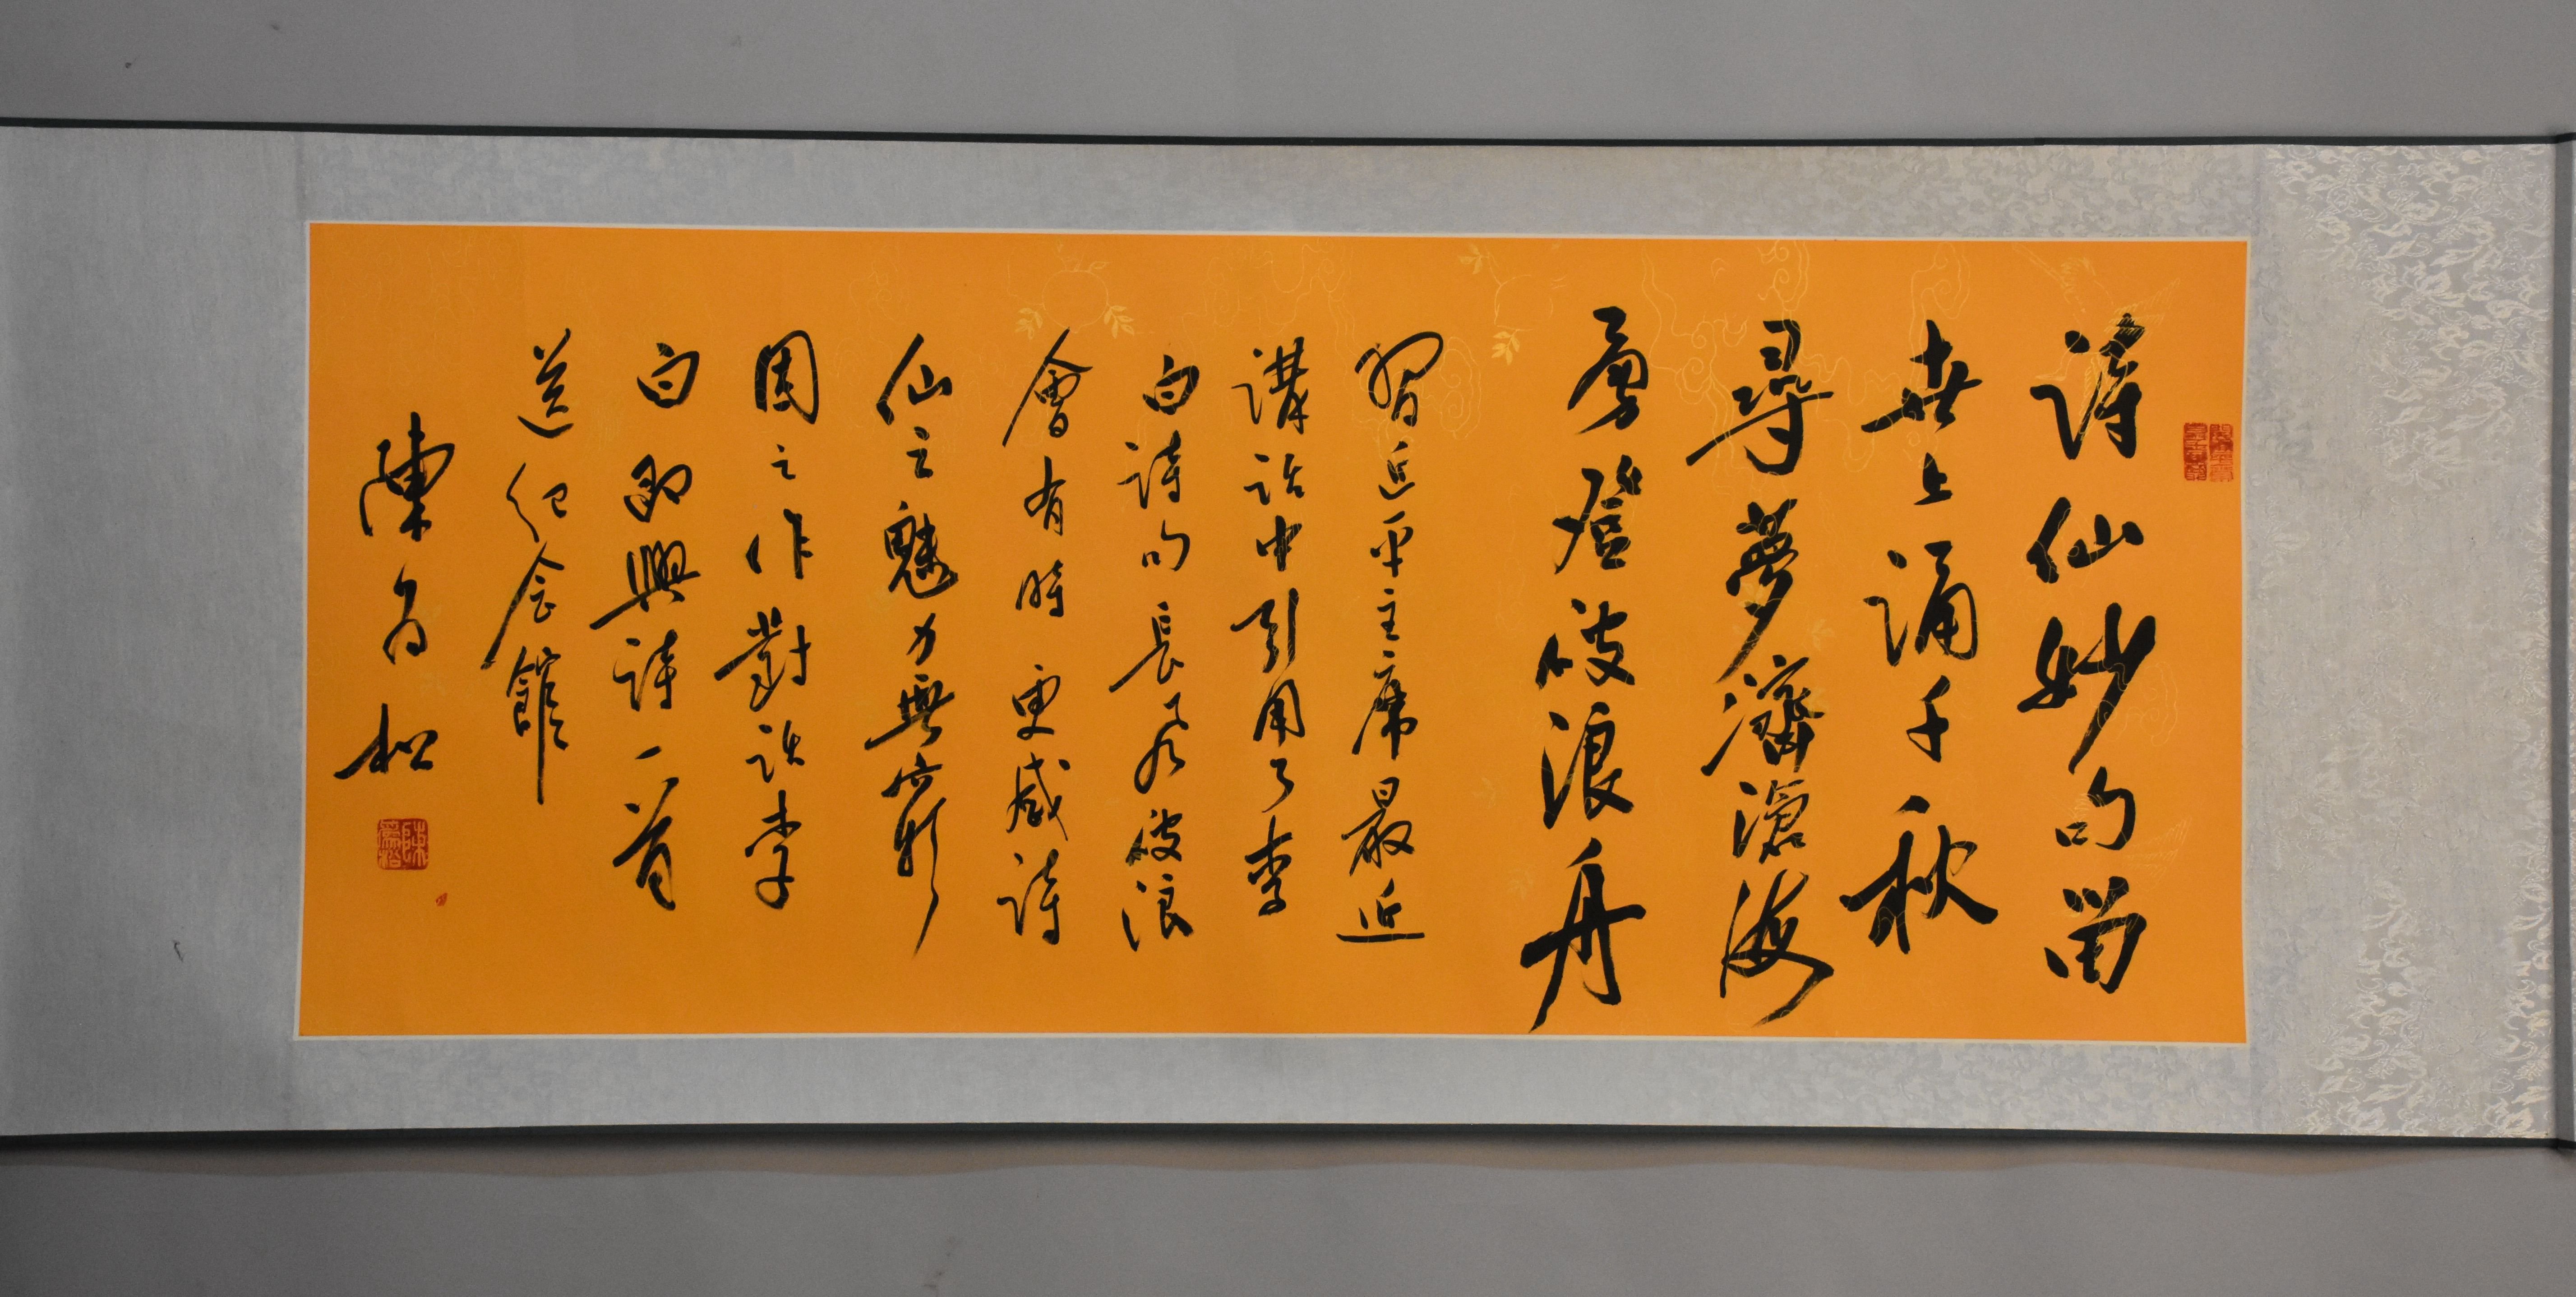 詩仙妙句留
世上誦千秋
尋夢濟滄海
勇登破浪舟
習近平主席最近
講話中引用了李
白詩句長風破浪
會有時更感詩
仙之魅力無窮
因之作對李
白即興詩一首
送紀念館
陳為松